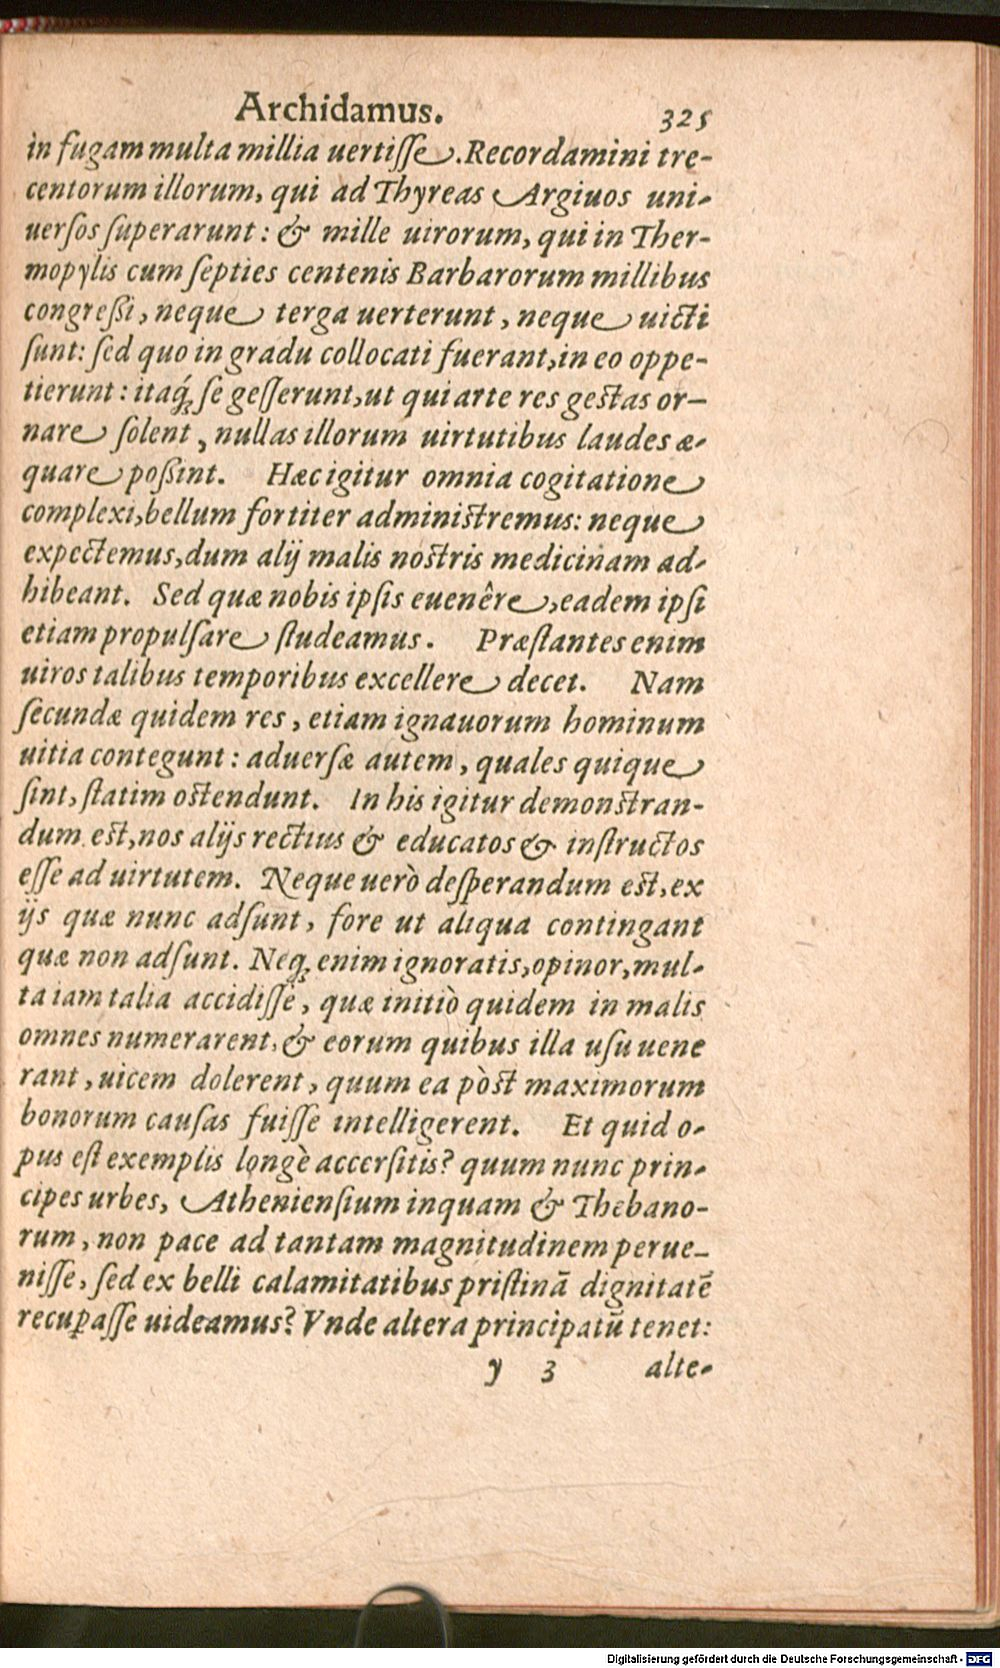 Archidamus. 325
in fugam multa millia uertiſſe. Recordamini tre-
centorum illorum, qui ad Thyreas Argiuos uni-
uerſos ſuperarunt: & mille uirorum, qui in Ther-
mopylis cum ſepties centenis Barbarorum millibus
congreßi, neque terga uerterunt, neque uicti
ſunt: ſed quo in gradu collocati fuerant, in eo oppe-
tierunt: itaq́; ſe geſſerunt, ut qui arte res gestas or-
nare ſolent, nullas illorum uirtutibus laudes æ-
quare poßint. Hæc igitur omnia cogitatione
complexi, bellum fortiter administremus: neque
expectemus, dum alij malis nostris medicinam ad-
hibeant. Sed quæ nobis ipſis euenêre, eadem ipſi
etiam propulſare ſtudeamus. Præſtantes enim
uiros talibus temporibus excellere decet. Nam
ſecundæ quidem res, etiam ignauorum hominum
uitia contegunt: aduerſæ autem, quales quique
ſint, ſtatim ostendunt. In his igitur demonstran-
dum est, nos alijs rectius & educatos & inſtructos
eſſe ad uirtutem. Neque uerò deſperandum est, ex
ijs quæ nunc adſunt, fore ut aliqua contingant
quæ non adſunt. Neq; enim ignoratis, opinor, mul-
ta iam talia accidiſſe, quæ initiò quidem in malis
omnes numerarent, & eorum quibus illa uſu uene
rant, uicem dolerent, quum ea pòst maximorum
bonorum cauſas fuiſſe intelligerent. Et quid o-
pus eſt exemplis longè accerſitis? quum nunc prin-
cipes urbes, Athenienſium inquam & Thebano-
rum, non pace ad tantam magnitudinem perue-
niſſe, ſed ex belli calamitatibus priſtinā dignitatē
recuꝑaſſe uideamus? Vnde altera principatū tenet:
y 3 alte-
Digitalisierung gefördert durch die Deutsche Forschungsgemeinschaft - DFG